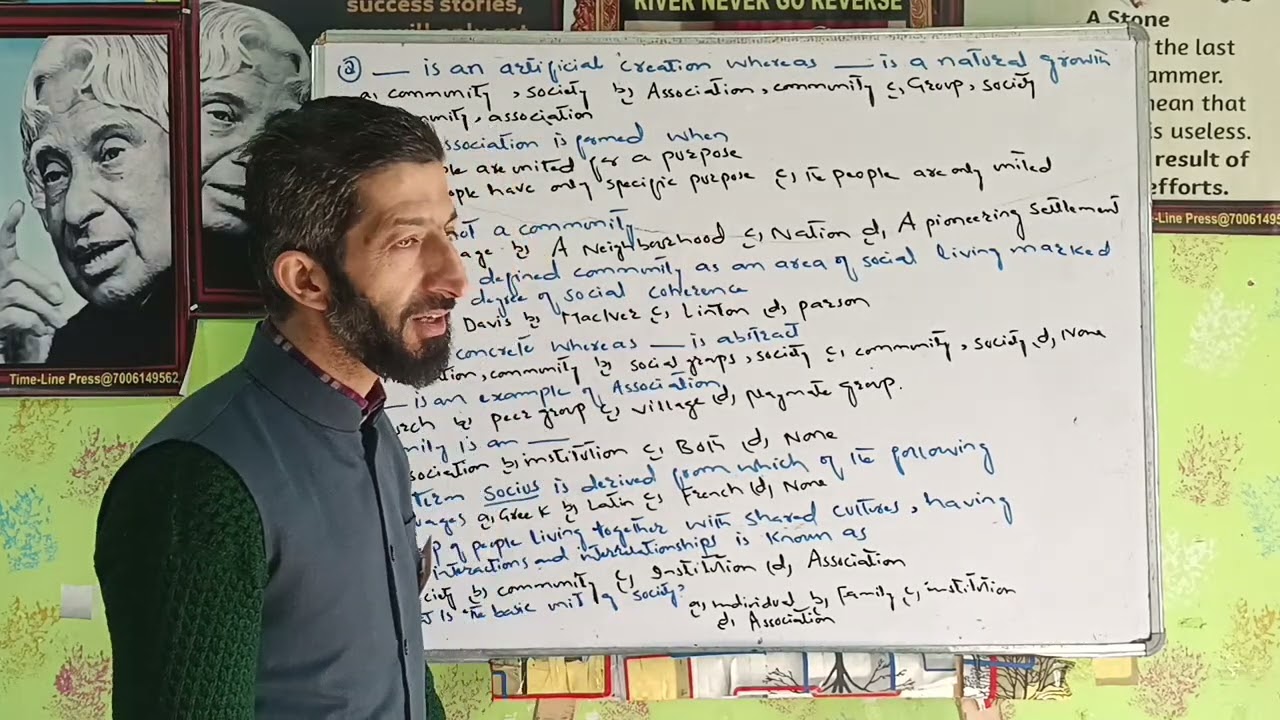 success stories,
RIVER NEVER GO REVERSE
A Stone
the last
ammer.
mean that
is useless.
result of
efforts.
Time-Line Press@7006149562
-Line Press@70061495
a) __ is an artificial creation whereas __ is a natural growth
a, community, society b, Association, community c, Group, society
unity, association
ssociation is formed when
ple are united for a purpose
ople have only specific purpose c, the people are only united
not a community
age b, A Neighbourhood c, Nation d, A pioneering settlement
defined community as an area of social living marked
degree of social coherence
Davis b, MacIver c, Linton d, parson
concrete whereas __ is abstract
tion, community b, social groups, society c, community, society d, None
__ is an example of Association
rch b, peer group c, village d, playmate group.
mily is an __
sociation b, institution c, Both d, None
term Socius is derived from which of the following
uages a, Greek b, Latin c, French d, None
p of people living together with shared cultures, having
interactions and interrelationships is known as
ciety b, community c, Institution d, Association
t is the basic unit of society? a, individual b, Family c, institution
d, Association